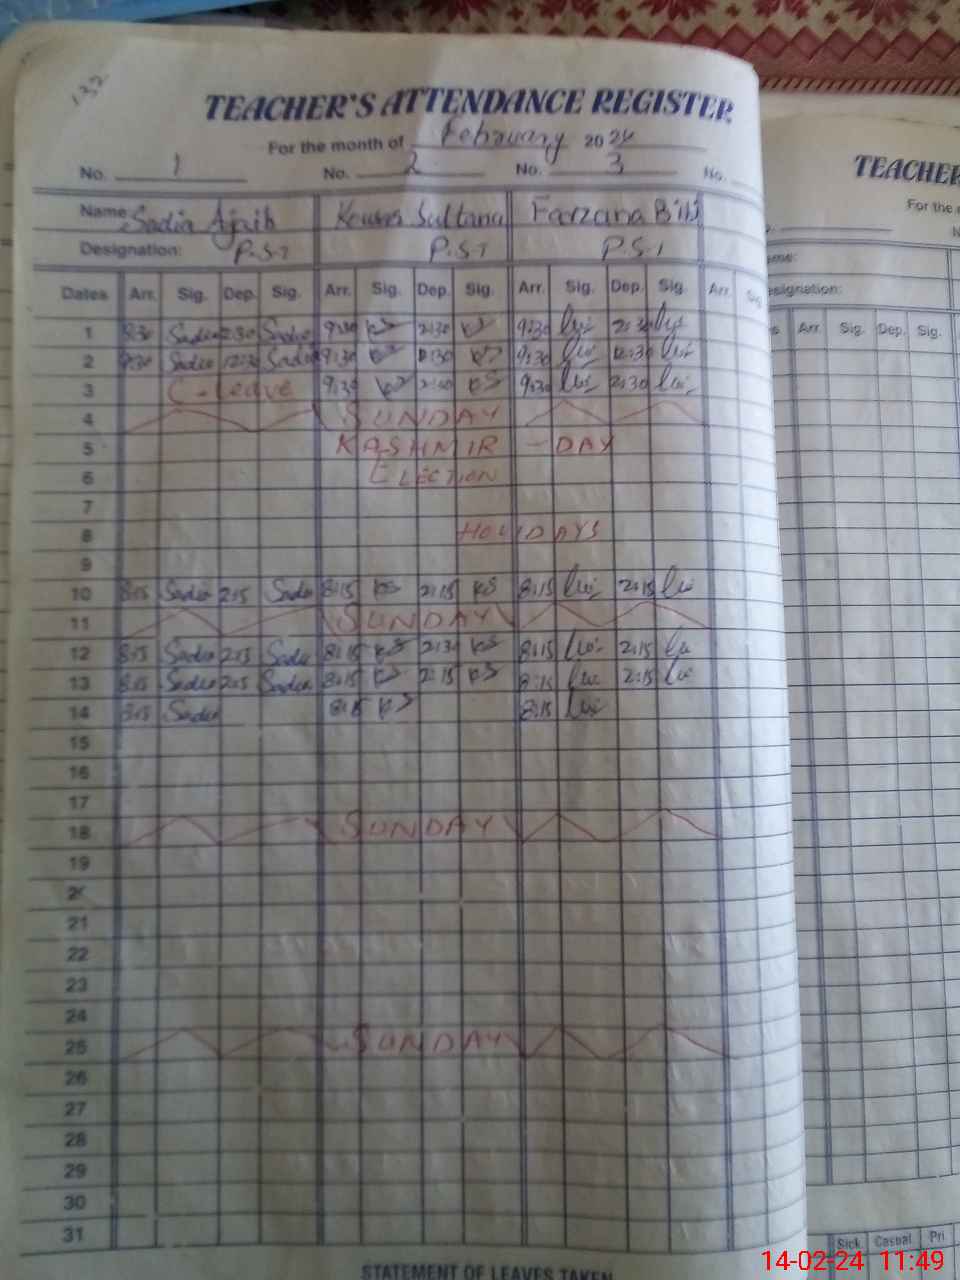 132
TEACHER'S ATTENDANCE REGISTER
For the month of February 2024
No. 1 No. 2 No. 3 No.
Name Sadia Ajaib Kouser Sultana Farzana BiBi
Designation: P.S.T P.S.T P.S.T
Dates Arr. Sig. Dep. Sig. Arr. Sig. Dep. Sig. Arr. Sig. Dep. Sig. Arr. Sig
1 Sadia Sadia 9:30 KS 2:30 KS 9:30 2:30
2 9:30 Sadia 12:30 Sadia 9:30 KS 12:30 KS 9:30 12:30
3 C-Leave 9:30 KS KS 9:30 2:30
4 SUNDAY
5 KASHMIR - DAY
6 ELECTION
7
8 HOLIDAYS
9
10 8:15 Sadia 2:15 Sadia 8:15 KS 2:15 KS 8:15 2:15
11 SUNDAY
12 8:15 Sadia 2:15 Sadia 8:15 KS KS 8:15 2:15
13 8:15 Sadia 2:15 Sadia 8:15 KS 2:15 KS 8:15 2:15
14 8:15 Sadia 8:15 KS 8:15
15
16
17
18 SUNDAY
19
20
21
22
23
24
25 SUNDAY
26
27
28
29
30
31
STATEMENT OF LEAVES TAKEN
TEACHER
For the
Arr. Sig. Dep. Sig.
Sick Casual Pri
14-02-24 11:49